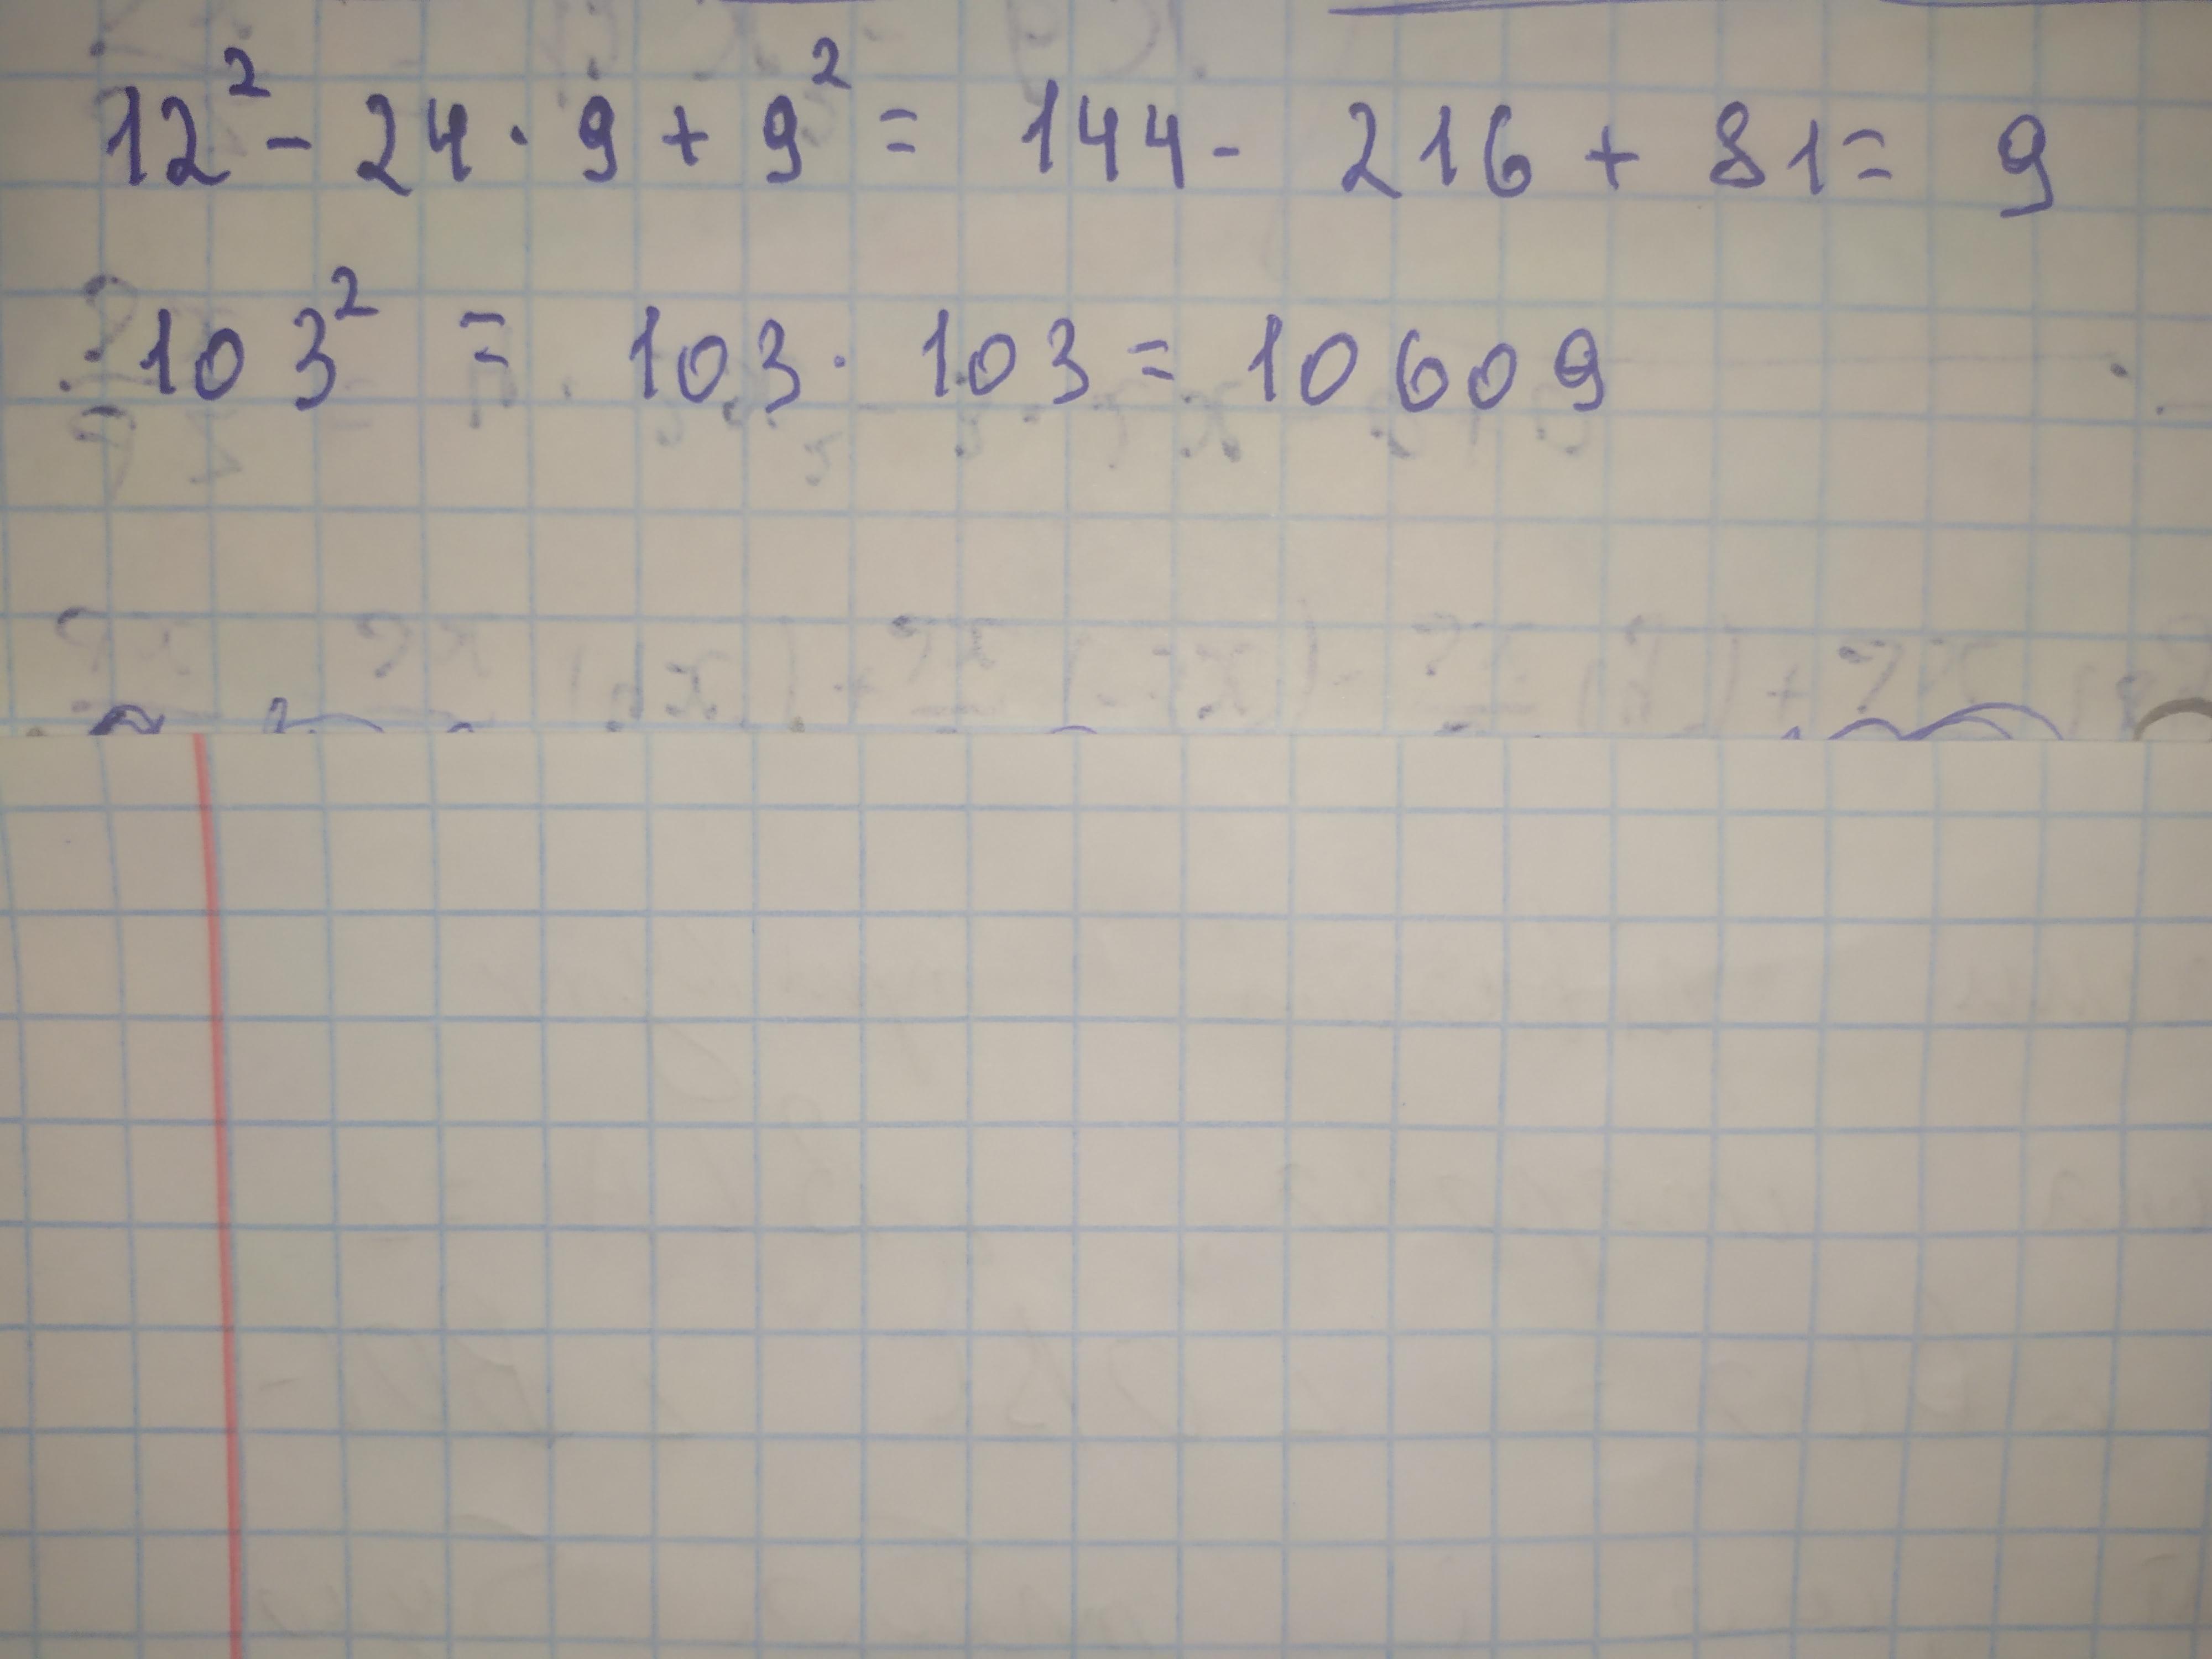 12² - 24 · 9 + 9² = 144 - 216 + 81 = 9
103² = 103 · 103 = 10609